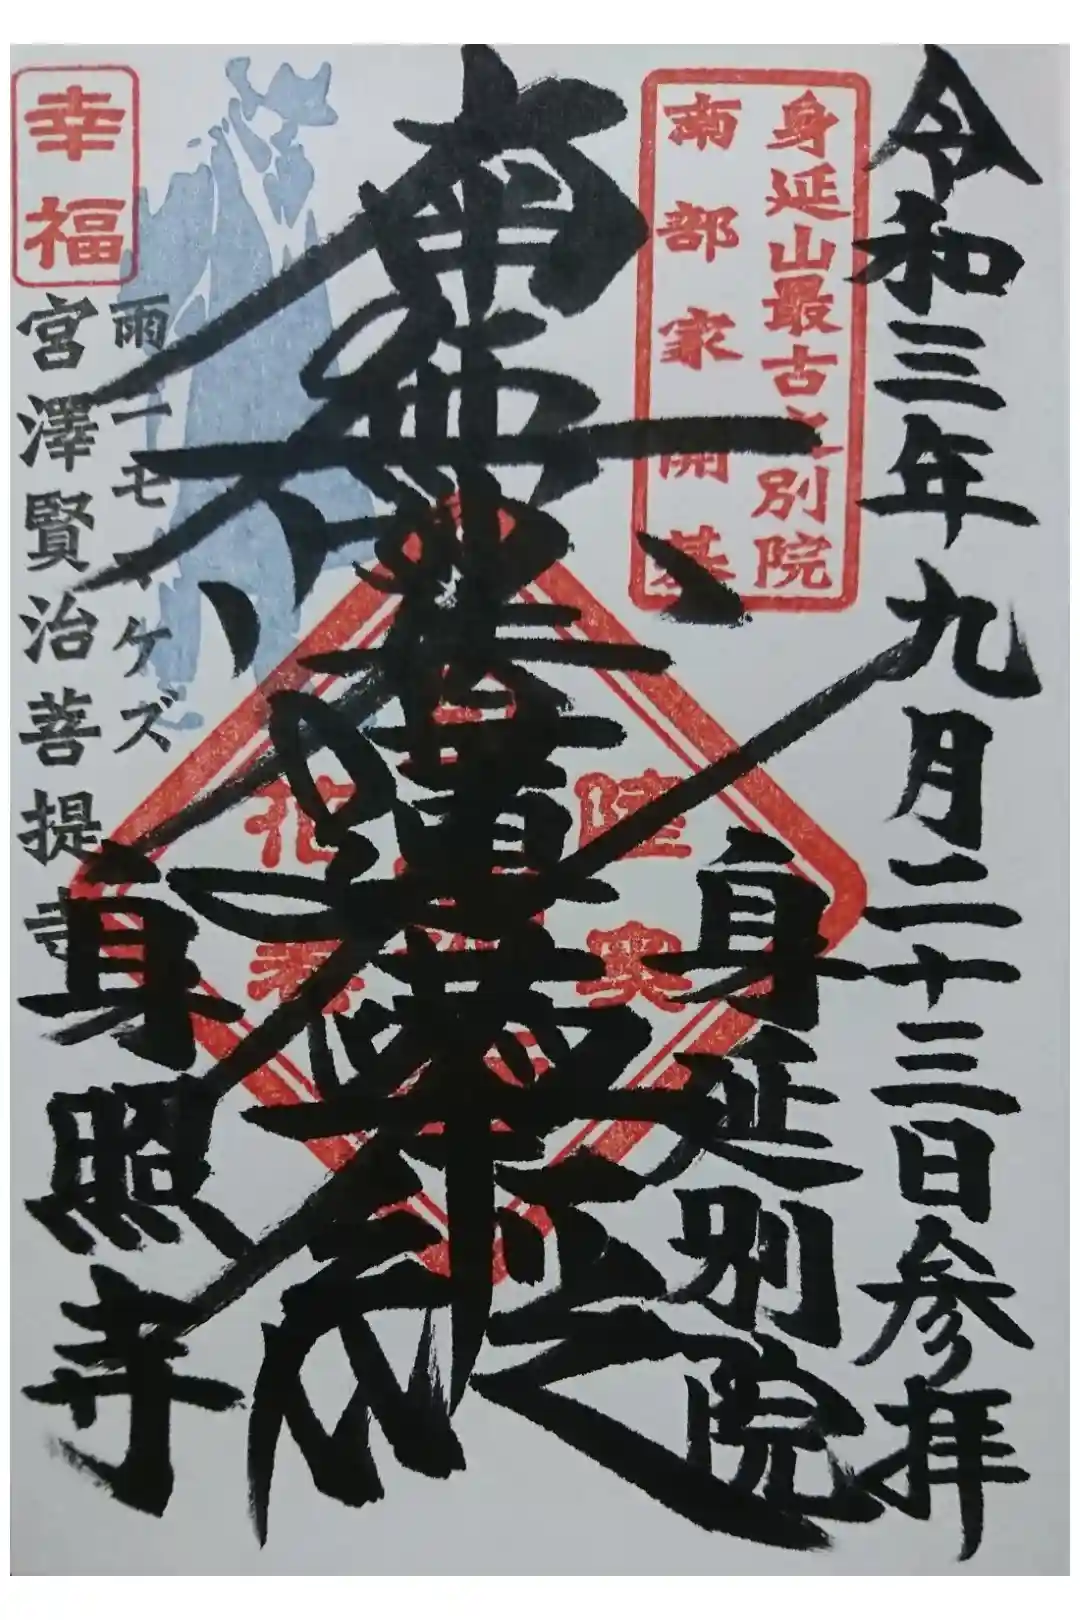 令和三年九月二十三日参拝
身延山最古之別院
南部家開基
身延別院
南無妙法蓮華経
陸奥
花巻
雨ニモマケズ
幸福
宮澤賢治菩提寺
身照寺